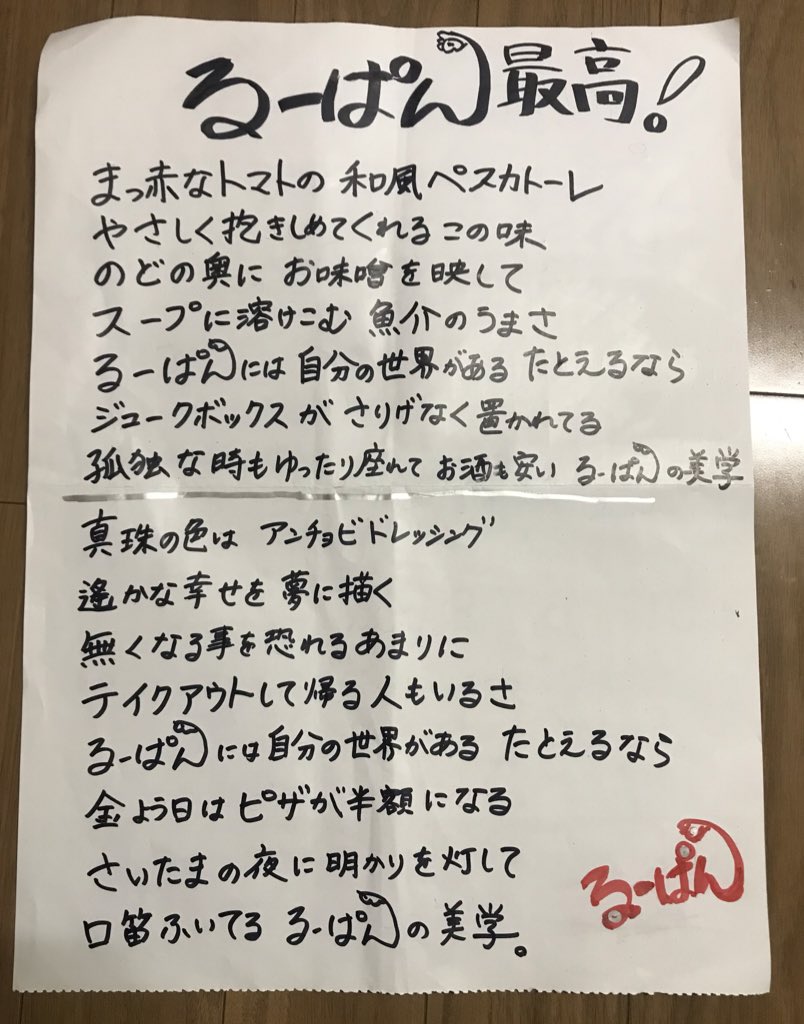 るーぱん最高!
まっ赤なトマトの 和風ペスカトーレ
やさしく抱きしめてくれる この味
のどの奥に お味噌を映して
スープに溶けこむ 魚介のうまさ
るーぱんには 自分の世界がある たとえるなら
ジュークボックスが さりげなく置かれてる
孤独な時もゆったり座れて お酒も安い るーぱんの美学
真珠の色は アンチョビドレッシング
遙かな幸せを 夢に描く
無くなる事を恐れるあまりに
テイクアウトして帰る人もいるさ
るーぱんには自分の世界がある たとえるなら
金よう日はピザが半額になる
さいたまの夜に 明かりを灯して
口笛ふいてる るーぱんの美学。
るーぱん